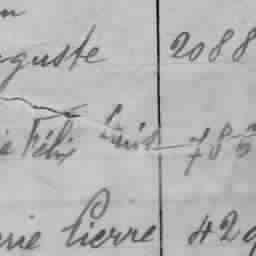 uguste 2088
ie Félix Louis 785
rie Pierre 429